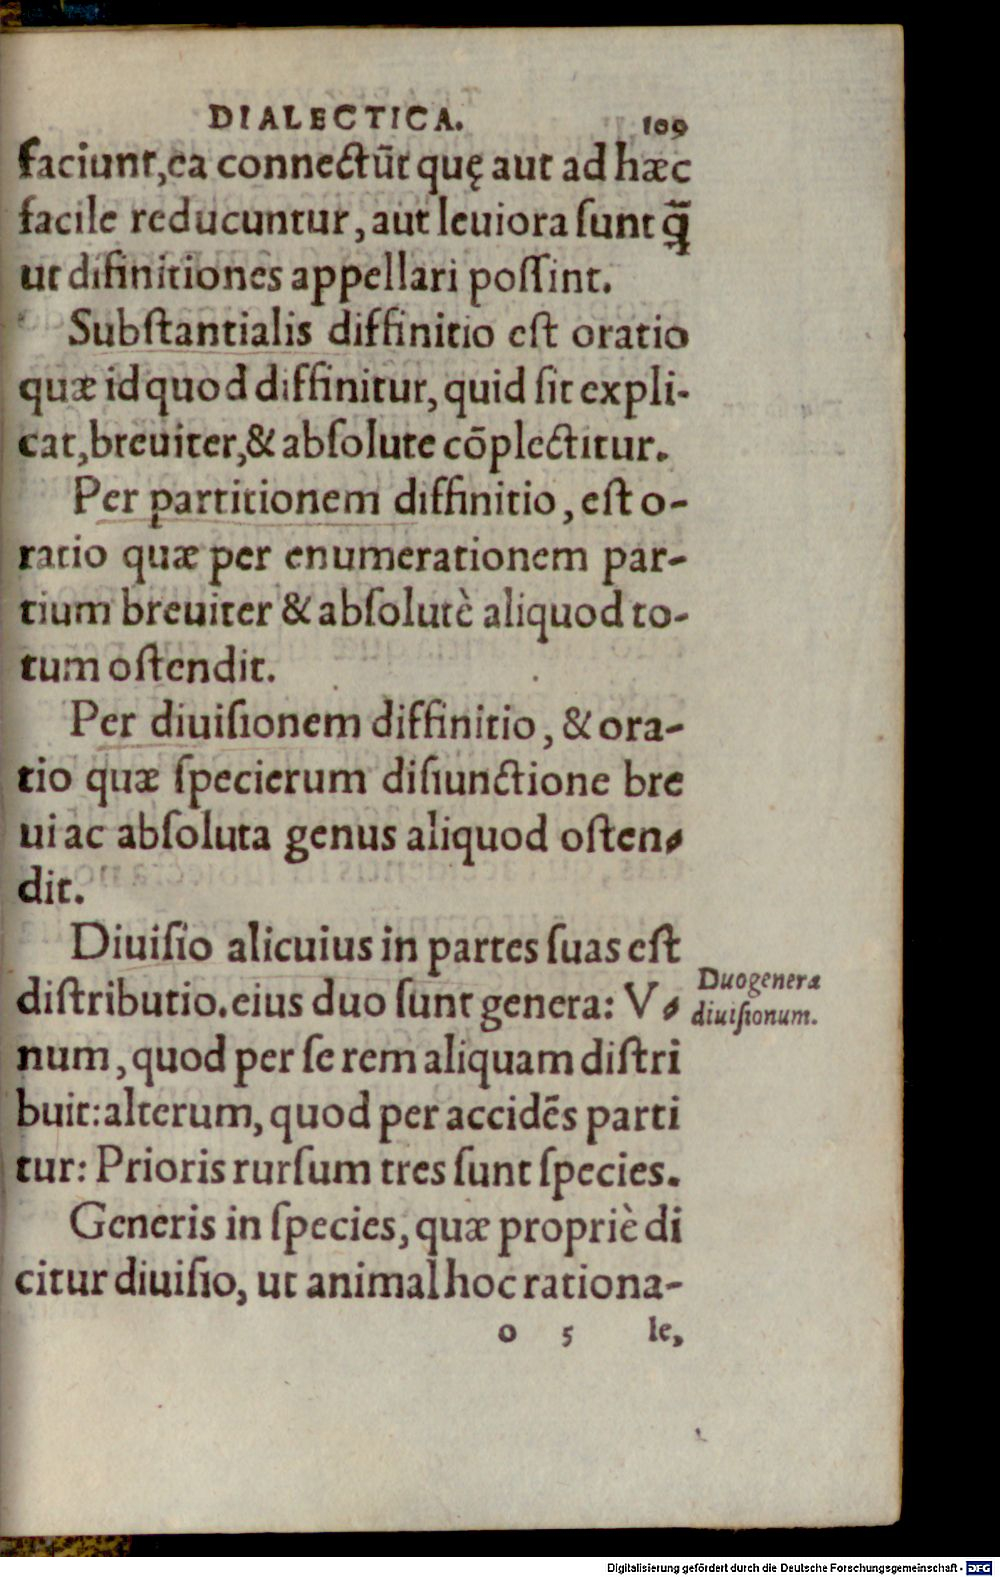 DIALECTICA. 109
faciunt, ea connectūt quę aut ad hæc
facile reducuntur, aut leuiora ſunt q̃
ut difinitiones appellari poſſint.
Subſtantialis diffinitio eſt oratio
quæ id quod diffinitur, quid ſit expli-
cat, breuiter, & abſolute cōplectitur.
Per partitionem diffinitio, eſt o-
ratio quæ per enumerationem par-
tium breuiter & abſolutè aliquod to-
tum oſtendit.
Per diuiſionem diffinitio, & ora-
tio quæ ſpecierum diſiunctione bre
ui ac abſoluta genus aliquod oſten-
dit.
Diuiſio alicuius in partes ſuas eſt
diſtributio. eius duo ſunt genera: V-
num, quod per ſe rem aliquam diſtri
buit: alterum, quod per accidēs parti
tur: Prioris rurſum tres ſunt ſpecies.
Generis in ſpecies, quæ propriè di
citur diuiſio, ut animal hoc rationa-
o 5 le,
Duo genera
diuiſionum.
Digitalisierung gefördert durch die Deutsche Forschungsgemeinschaft - DFG